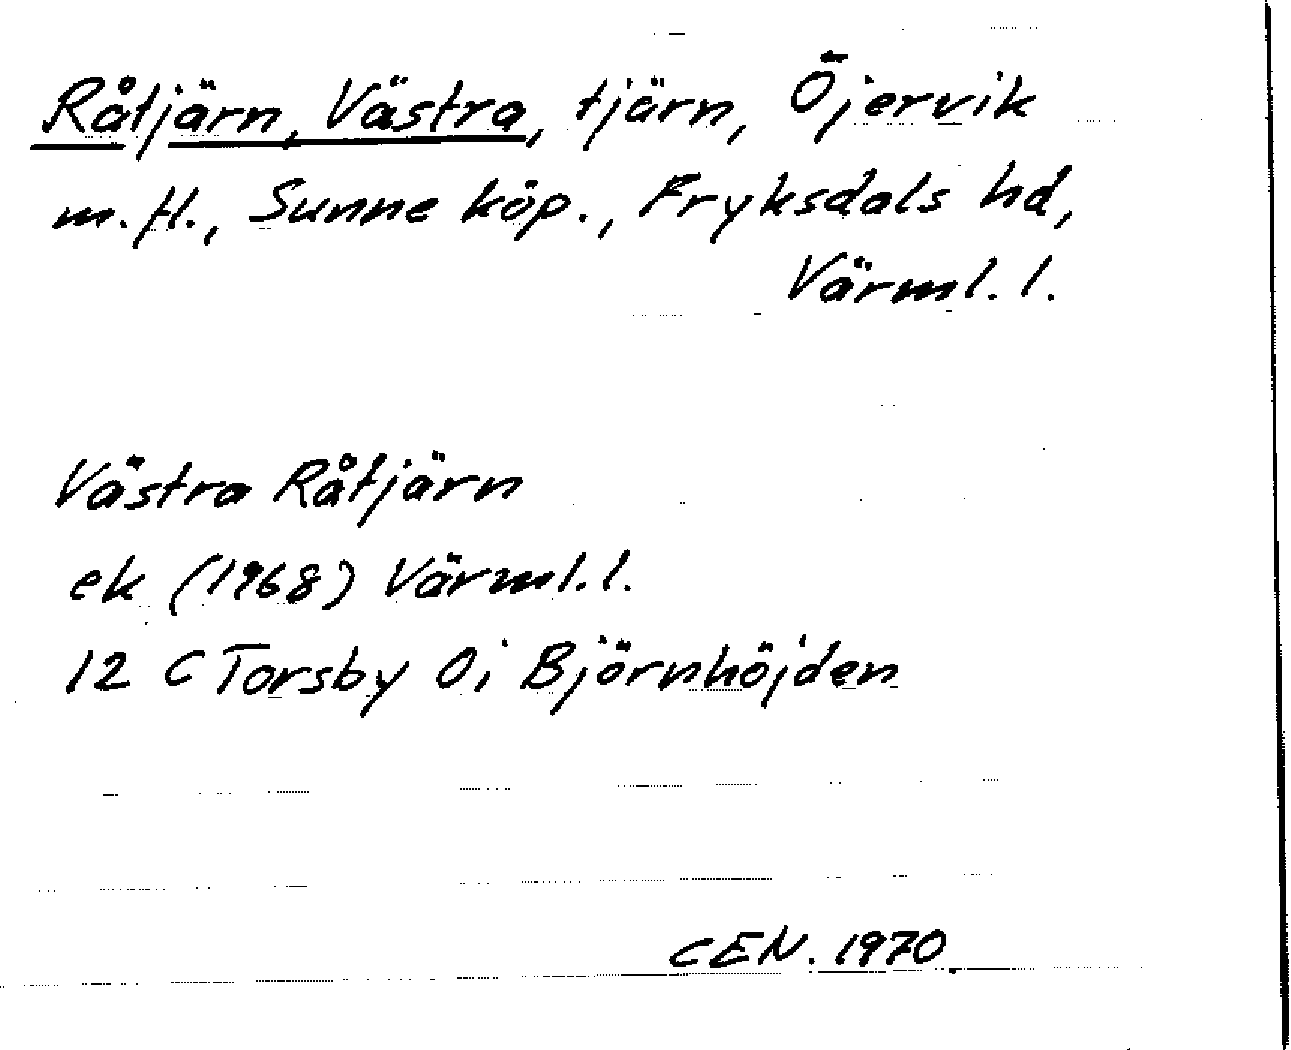 Råtjärn, Västra, tjärn, Öjervik
m.fl., Sunne köp., Fryksdals hd,
Värml. l.
Västra Råtjärn
ek (1968) Värml. l.
12 C Torsby 0i Björnhöjden
CEN. 1970